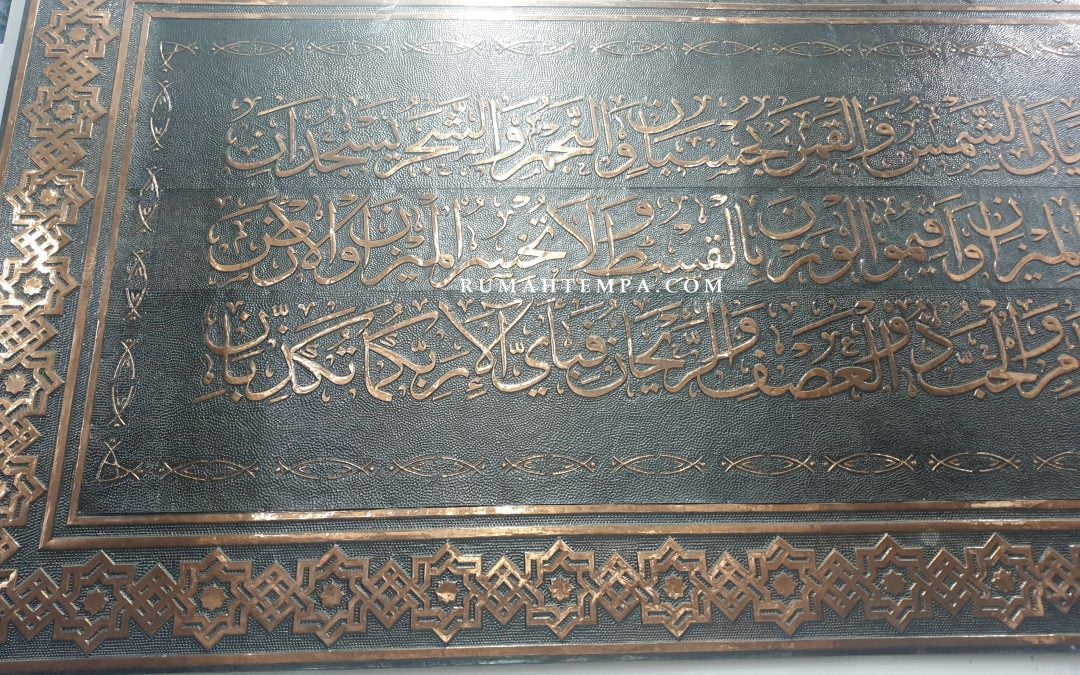 الشمس والقمر بحسبان والنجم والشجر يسجدان
الميزان واقيموا الوزن بالقسط ولا تخسروا الميزان والارض
RUMAHTEMPA.COM
والحب ذو العصف والريحان فباي الاء ربكما تكذبان